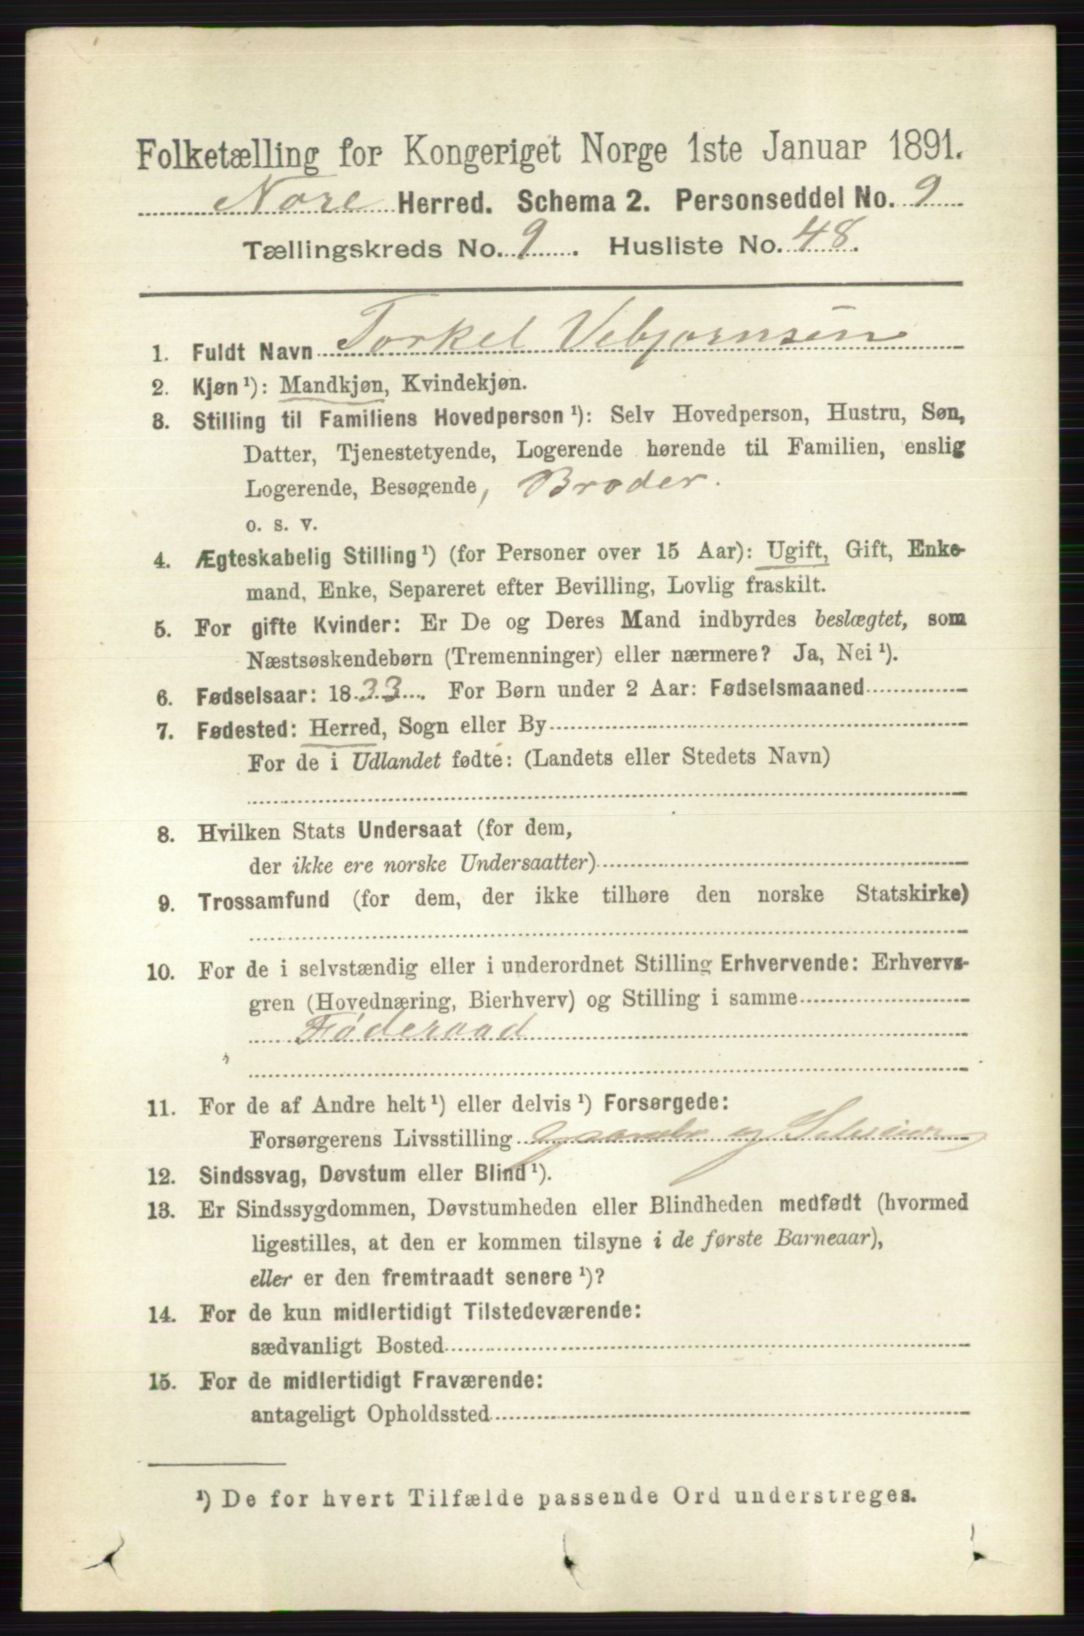 Folketælling for Kongeriget Norge 1ste Januar 1891.
Nore Herred. Schema 2. Personseddel No. 9
Tællingskreds No. 9. Husliste No. 48.
1. Fuldt Navn Torkel Vebjørnsen
2. Kjøn¹): Mandkjøn, Kvindekjøn.
3. Stilling til Familiens Hovedperson¹): Selv Hovedperson, Hustru, Søn,
Datter, Tjenestetyende, Logerende hørende til Familien, enslig
Logerende, Besøgende, Broder.
o. s. v.
4. Ægteskabelig Stilling¹) (for Personer over 15 Aar): Ugift, Gift, Enke-
mand, Enke, Separeret efter Bevilling, Lovlig fraskilt.
5. For gifte Kvinder: Er De og Deres Mand indbyrdes beslægtet, som
Næstsøskendebørn (Tremenninger) eller nærmere? Ja, Nei¹).
6. Fødselsaar: 1833. For Børn under 2 Aar: Fødselsmaaned
7. Fødested: Herred, Sogn eller By
For de i Udlandet fødte: (Landets eller Stedets Navn)
8. Hvilken Stats Undersaat (for dem,
der ikke ere norske Undersaatter)
9. Trossamfund (for dem, der ikke tilhøre den norske Statskirke)
10. For de i selvstændig eller i underordnet Stilling Erhvervende: Erhvervs-
gren (Hovednæring, Bierhverv) og Stilling i samme
Føderaad
11. For de af Andre helt¹) eller delvis¹) Forsørgede:
Forsørgerens Livsstilling og Selveier
12. Sindssvag, Døvstum eller Blind¹).
13. Er Sindssygdommen, Døvstumheden eller Blindheden medfødt (hvormed
ligestilles, at den er kommen tilsyne i de første Barneaar),
eller er den fremtraadt senere¹)?
14. For de kun midlertidigt Tilstedeværende:
sædvanligt Bosted
15. For de midlertidigt Fraværende:
antageligt Opholdssted
¹) De for hvert Tilfælde passende Ord understreges.